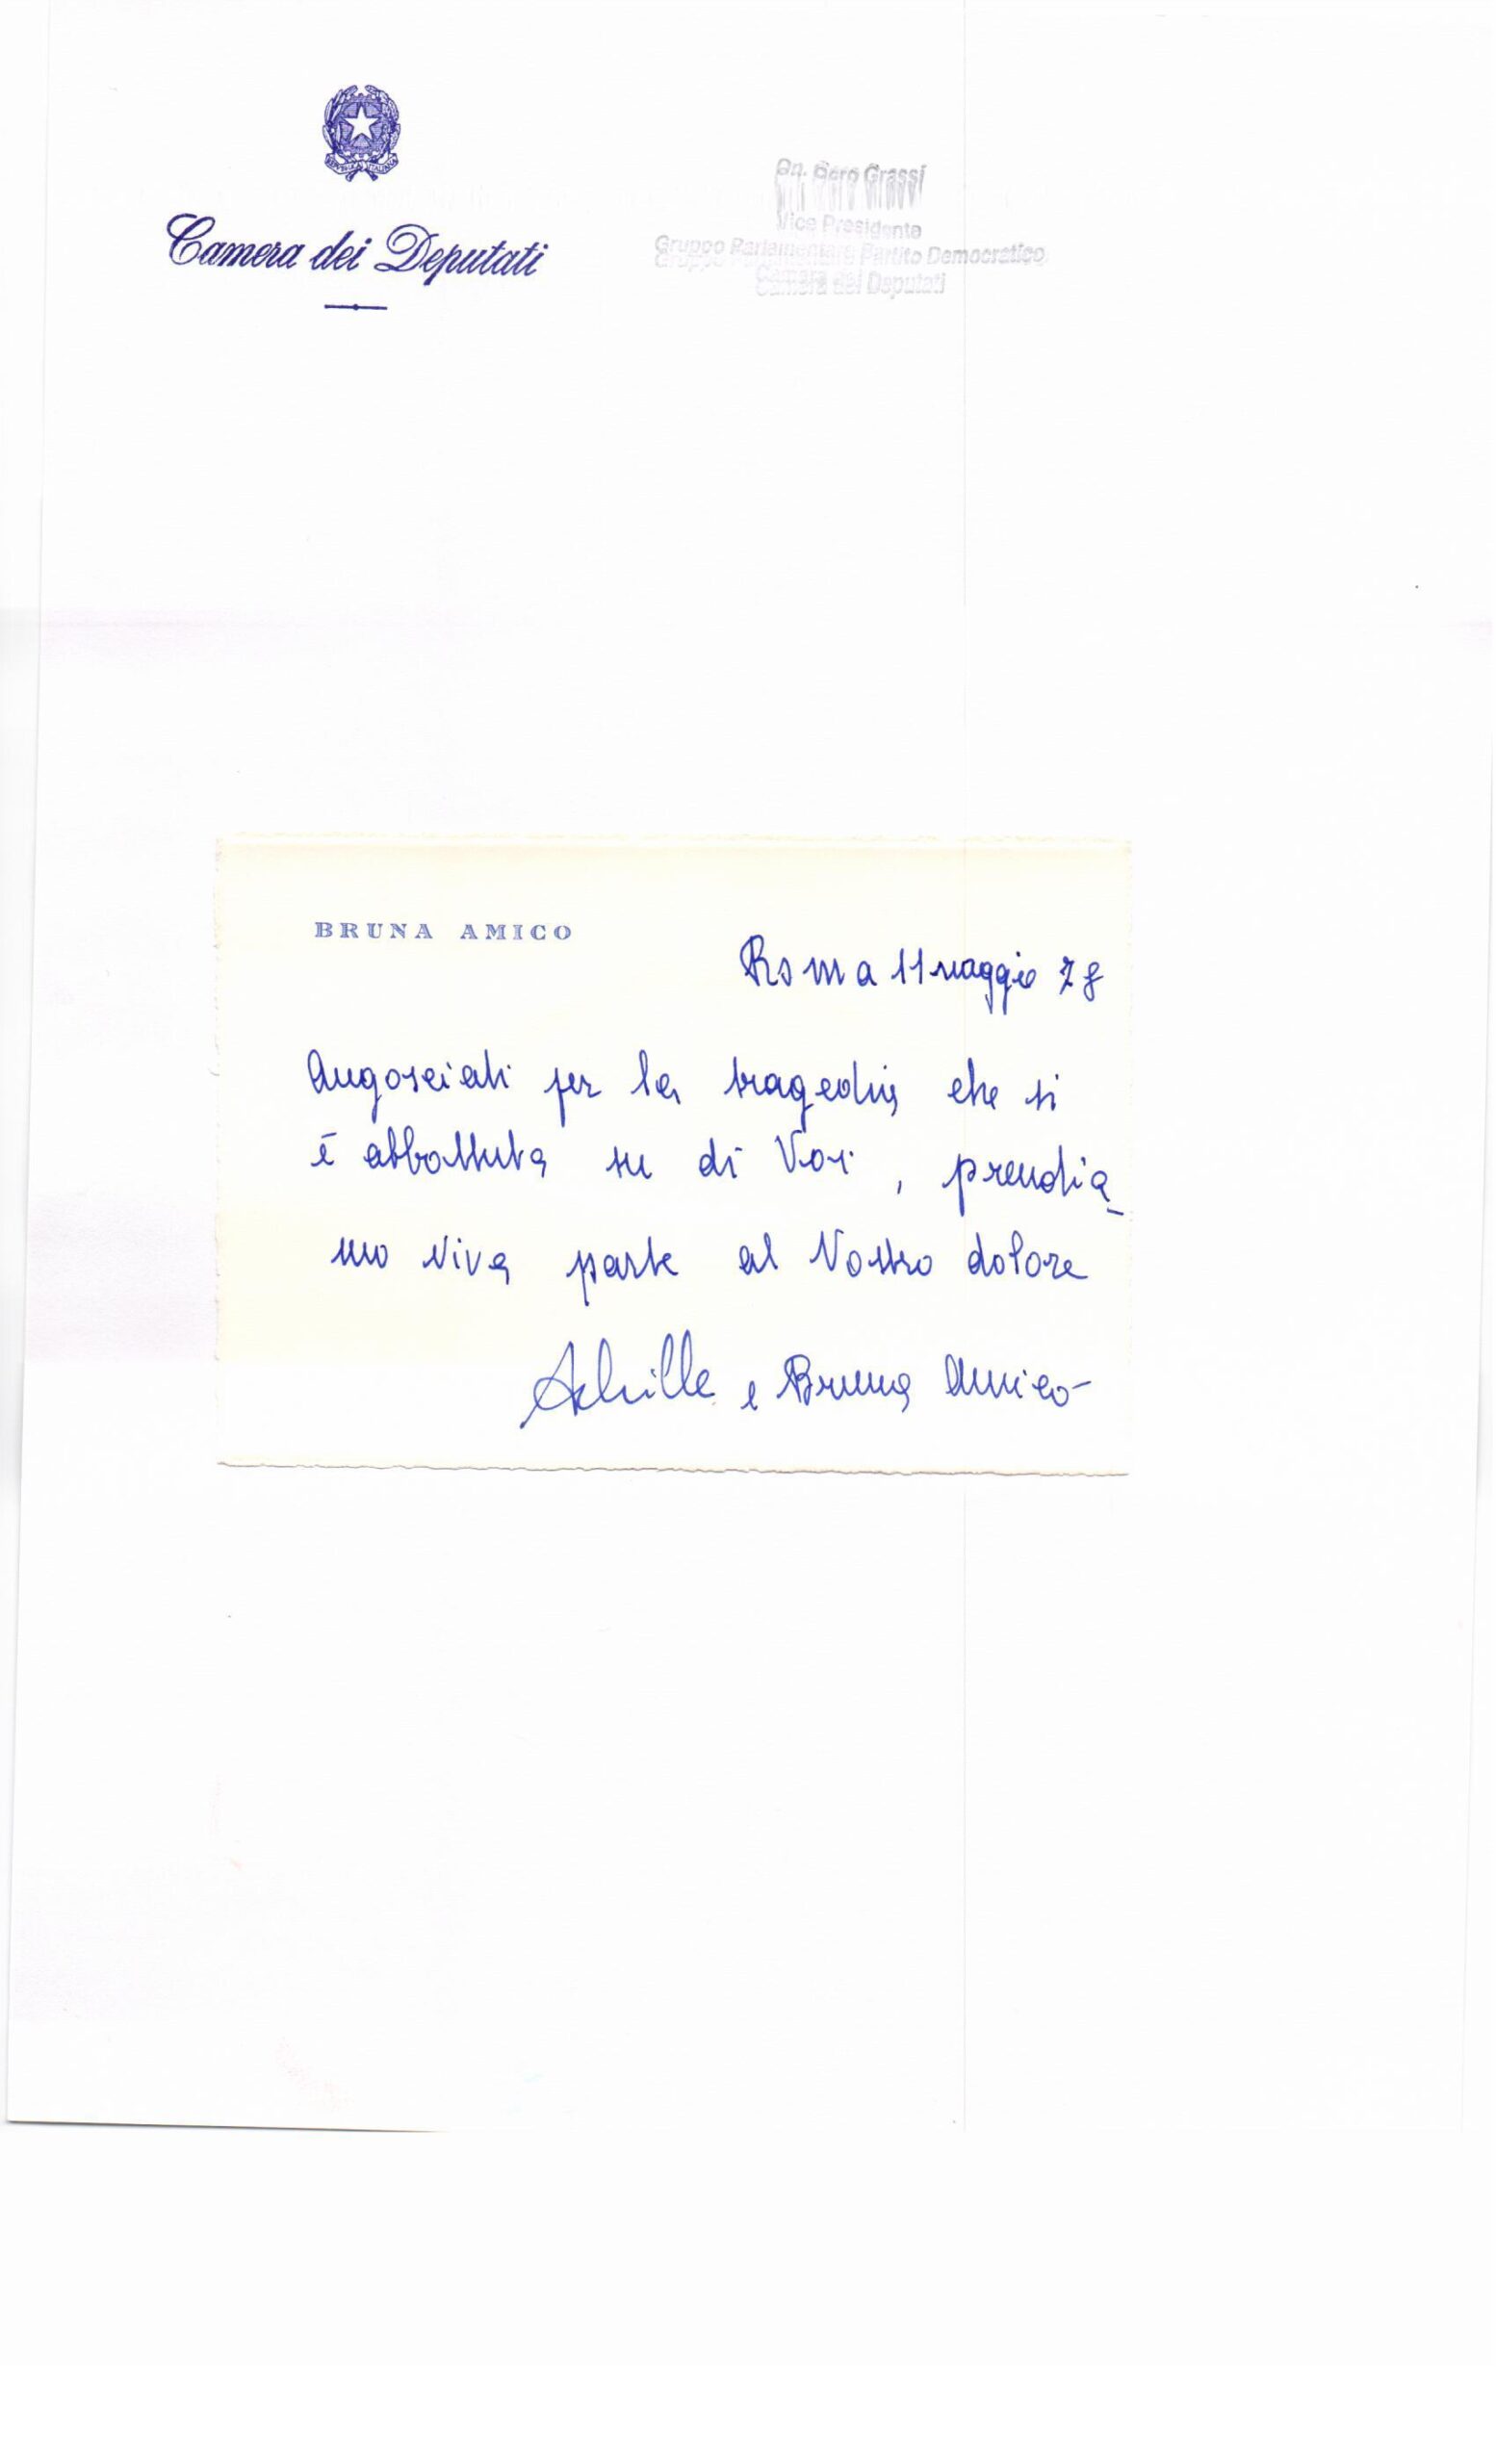 REPVBBLICA ITALIANA
Camera dei Deputati
On. Gero Grassi
Vice Presidente
Gruppo Parlamentare Partito Democratico
Camera dei Deputati
BRUNA AMICO
Roma 11 maggio 78
Angosciati per la tragedia che si
è abbattuta su di Voi, prendia_
mo viva parte al Vostro dolore
Achille e Bruna Amico